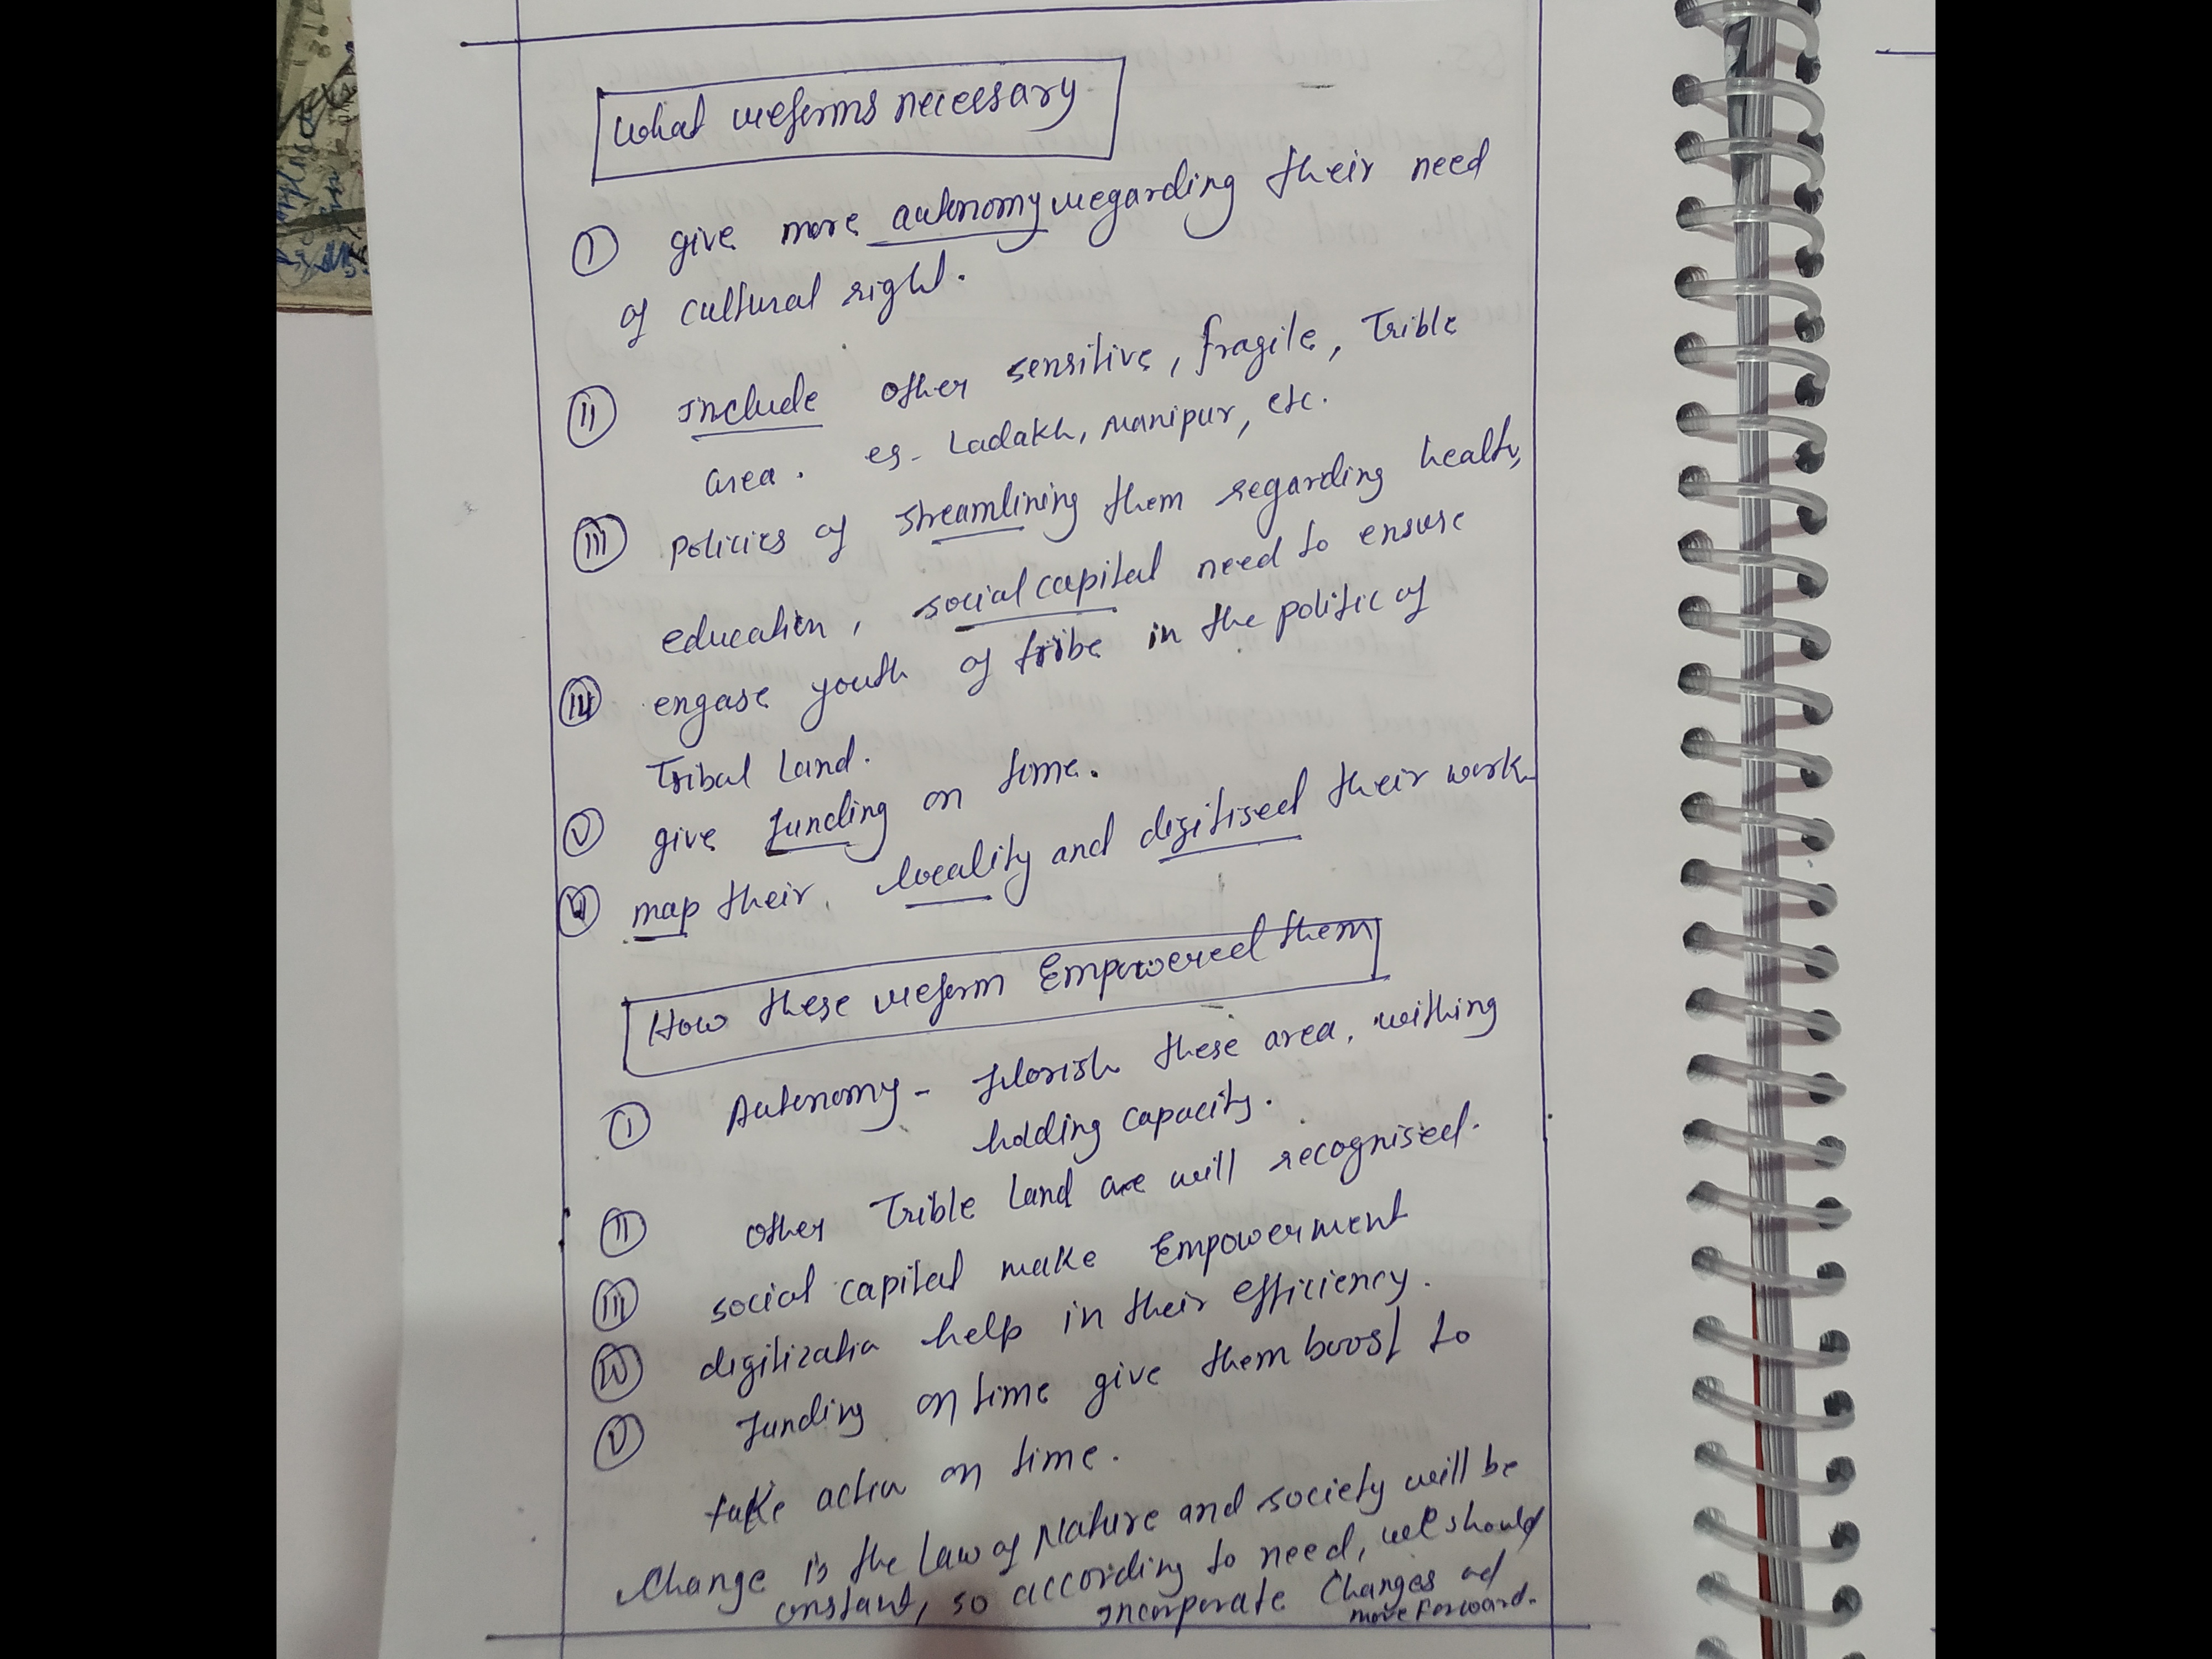 What reforms necessary
(I) give more autonomy regarding their need
of cultural right.
(II) Include other sensitive, fragile, Trible
area. eg- Ladakh, Manipur, etc.
(III) policies of streamlining them regarding health,
education, social capital need to ensure
(IV) engase youth of tribe in the politic of
Tribal Land.
(V) give funding on time.
(VI) map their locality and digitised their work
How these reform Empowered them
(I) Autonomy - florish these area, withing
holding capacity.
(II) other Trible Land are will recognised.
(III) social capital make Empowerment
(IV) digitization help in their efficiency.
(V) funding on time give them boost to
take action on time.
Change is the Law of Nature and society will be
constant, so according to need, we should
incorporate Changes ad
move forward.